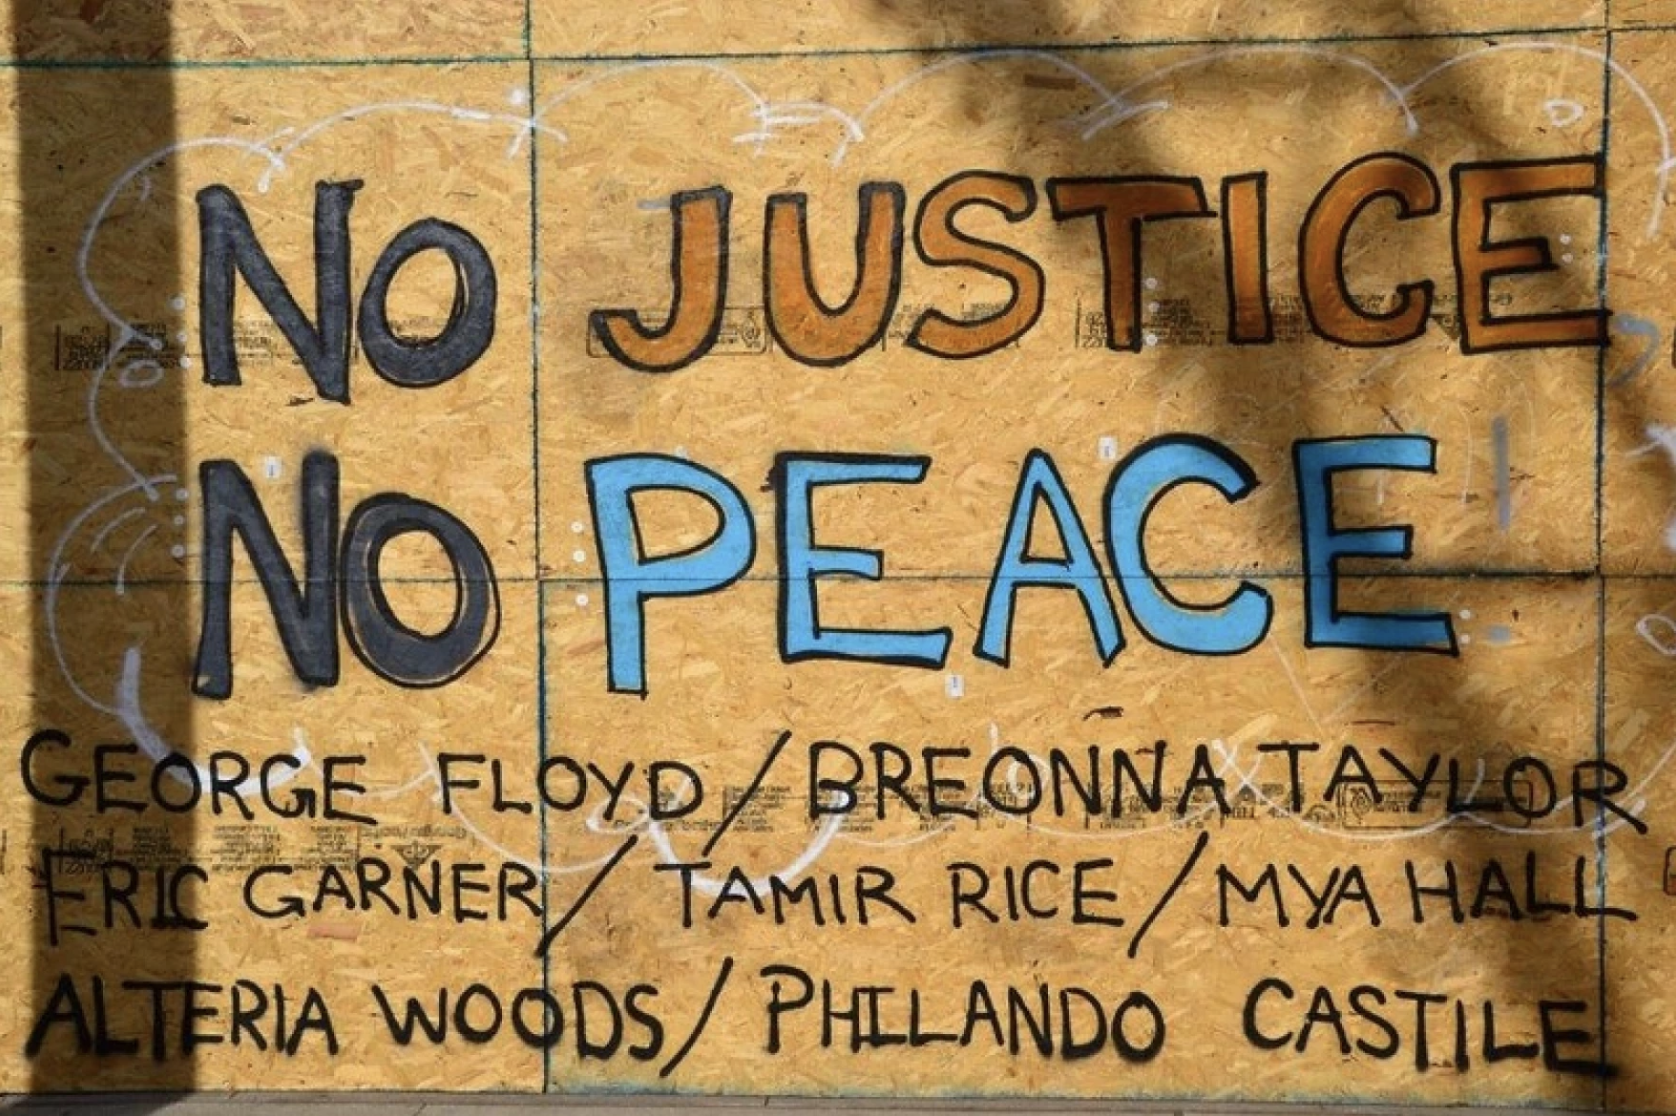 NO JUSTICE
NO PEACE
GEORGE FLOYD / BREONNA TAYLOR
ERIC GARNER / TAMIR RICE / MYA HALL
ALTERIA WOODS / PHILANDO CASTILE